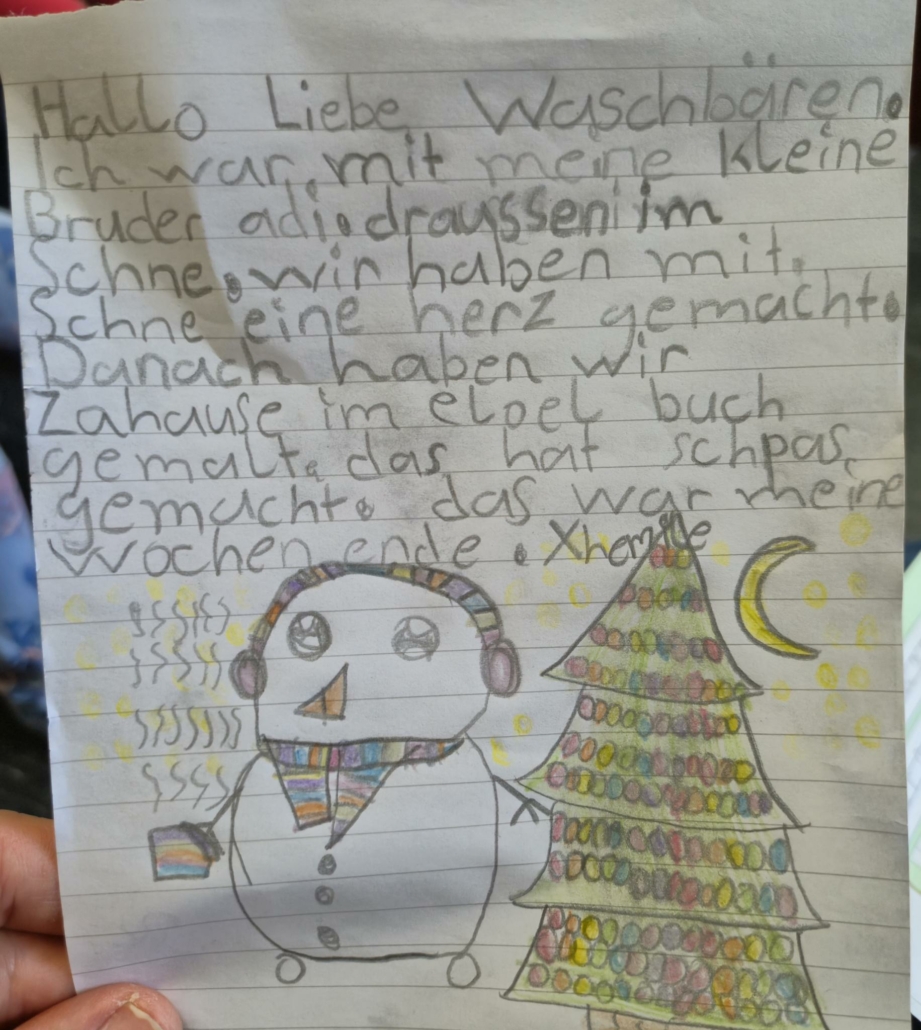 Hallo Liebe Waschbären.
Ich war mit meine kleine
Bruder adi.draussen im
Schne.wir haben mit
Schne eine herz gemacht.
Danach haben wir
Zahause im eloel buch
gemalt. das hat schpas
gemacht. das war meine
wochen ende.